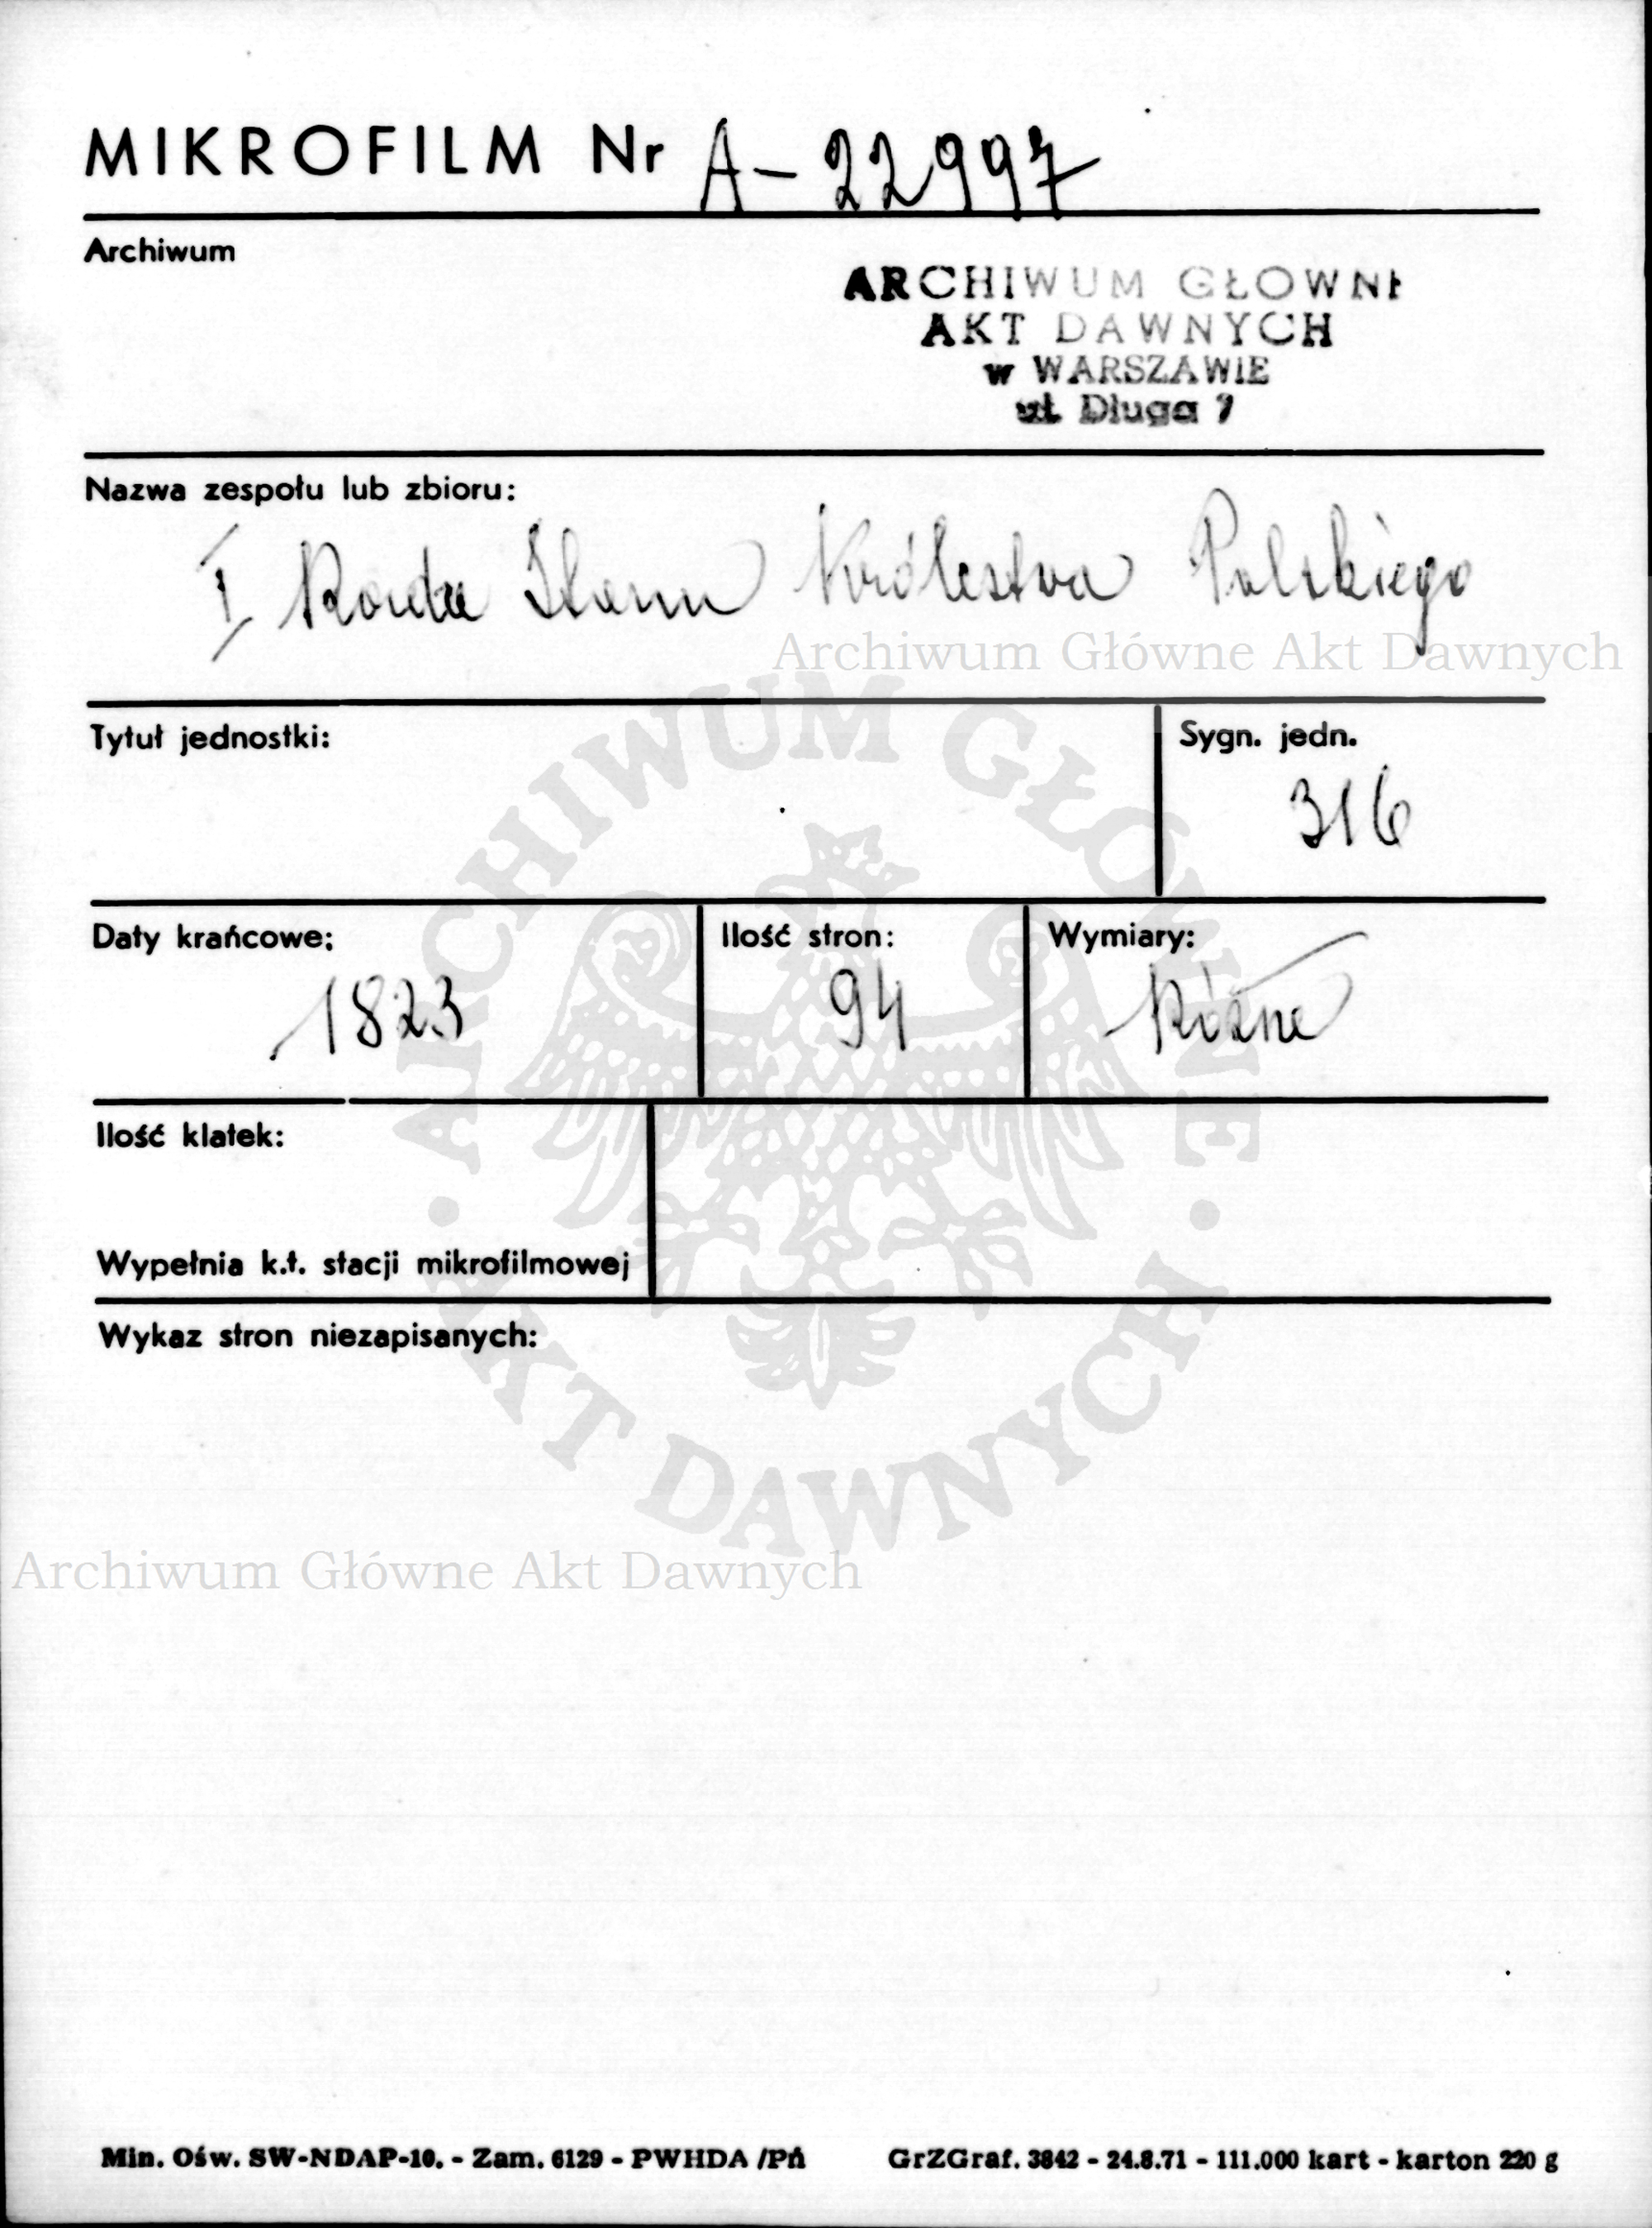 MIKROFILM Nr A-22997
Archiwum
ARCHIWUM GŁOWNE
AKT DAWNYCH
w WARSZAWIE
ul. Długa 7
Nazwa zespołu lub zbioru:
I Rada Stanu Królestwa Polskiego
Archiwum Główne Akt Dawnych
Tytuł jednostki:
Sygn. jedn.
316
Daty krańcowe:
1823
Ilość stron:
94
Wymiary:
Różne
Ilość klatek:
Wypełnia k.t. stacji mikrofilmowej
Wykaz stron niezapisanych:
ARCHIWUM GŁÓWNE
AKT DAWNYCH
Archiwum Główne Akt Dawnych
Min. Ośw. SW-NDAP-10. - Zam. 6129 - PWHDA /Pń
GrZGraf. 3842 - 24.8.71 - 111.000 kart - karton 220 g